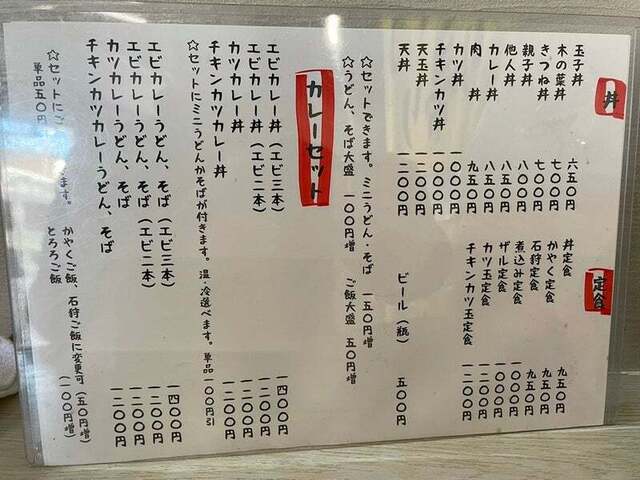 丼
玉子丼 六五〇円
木の葉丼 七〇〇円
きつね丼 七〇〇円
親子丼 八〇〇円
他人丼 八五〇円
カレー丼 八五〇円
肉丼 九五〇円
カツ丼 一〇〇〇円
チキンカツ丼 一〇〇〇円
天玉丼 一二〇〇円
天丼 一二〇〇円
定食
丼定食 九五〇円
かやく定食 九五〇円
石狩定食 九五〇円
煮込み定食 一〇〇〇円
ザル定食 一〇〇〇円
カツ玉定食 一一〇〇円
チキンカツ玉定食 一一〇〇円
ビール(瓶) 五〇〇円
☆セットできます。ミニうどん・そば 一五〇円増
☆うどん、そば大盛 一〇〇円増 ご飯大盛 五〇円増
カレーセット
エビカレー丼(エビ三本) 一四〇〇円
エビカレー丼(エビ二本) 一二〇〇円
カツカレー丼 一二〇〇円
チキンカツカレー丼 一二〇〇円
☆セットにミニうどんかそばが付きます。温・冷選べます。単品一〇〇円引
エビカレーうどん、そば(エビ三本) 一四〇〇円
エビカレーうどん、そば(エビ二本) 一二〇〇円
カツカレーうどん、そば 一二〇〇円
チキンカツカレーうどん、そば 一二〇〇円
☆セットにご ます。 かやくご飯、石狩ご飯に変更可(五〇円増)
単品五〇円 とろろご飯 (一〇〇円増)